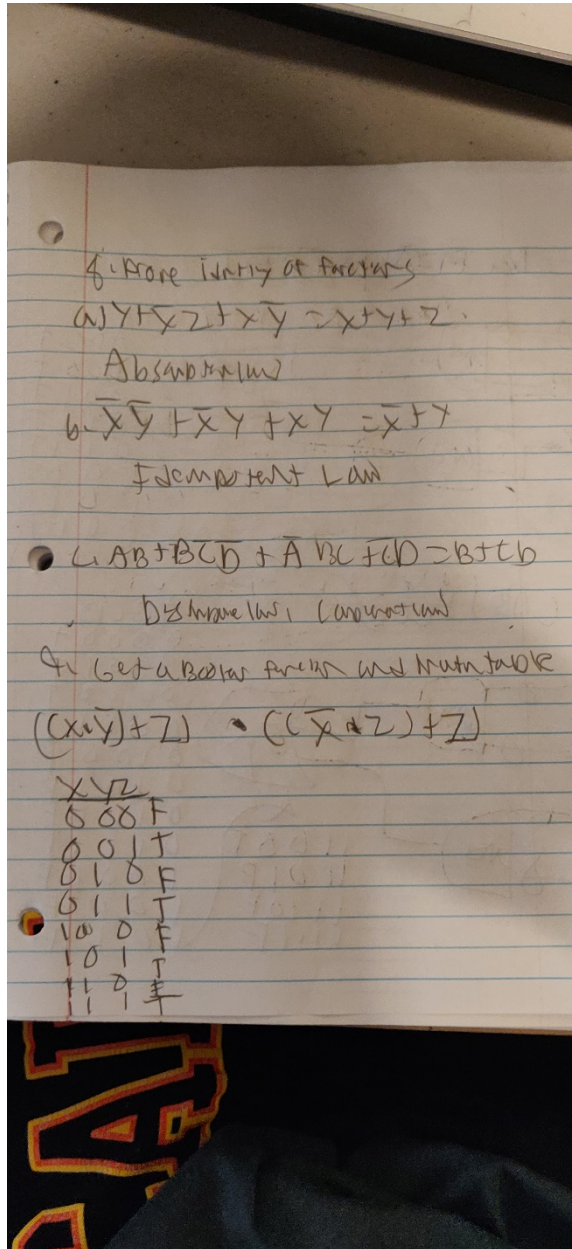 8. Prove identity of functions
a) Y+X̅Z+XY̅ =X+Y+Z.
Absorption law
b. X̅Y̅ +X̅Y +XY =X̅+Y
Idempotent Law
C. AB+BC̅D̅ + A̅BC +C̅D=B+C̅D
Distributive law,
9. Get a Boolean function and truth table
((X·Y̅)+Z) · ((X̅·Z)+Z)
X Y Z
0 0 0 F
0 0 1 T
0 1 0 F
0 1 1 T
1 0 0 F
1 0 1 T
1 1 0 F
1 1 1 T